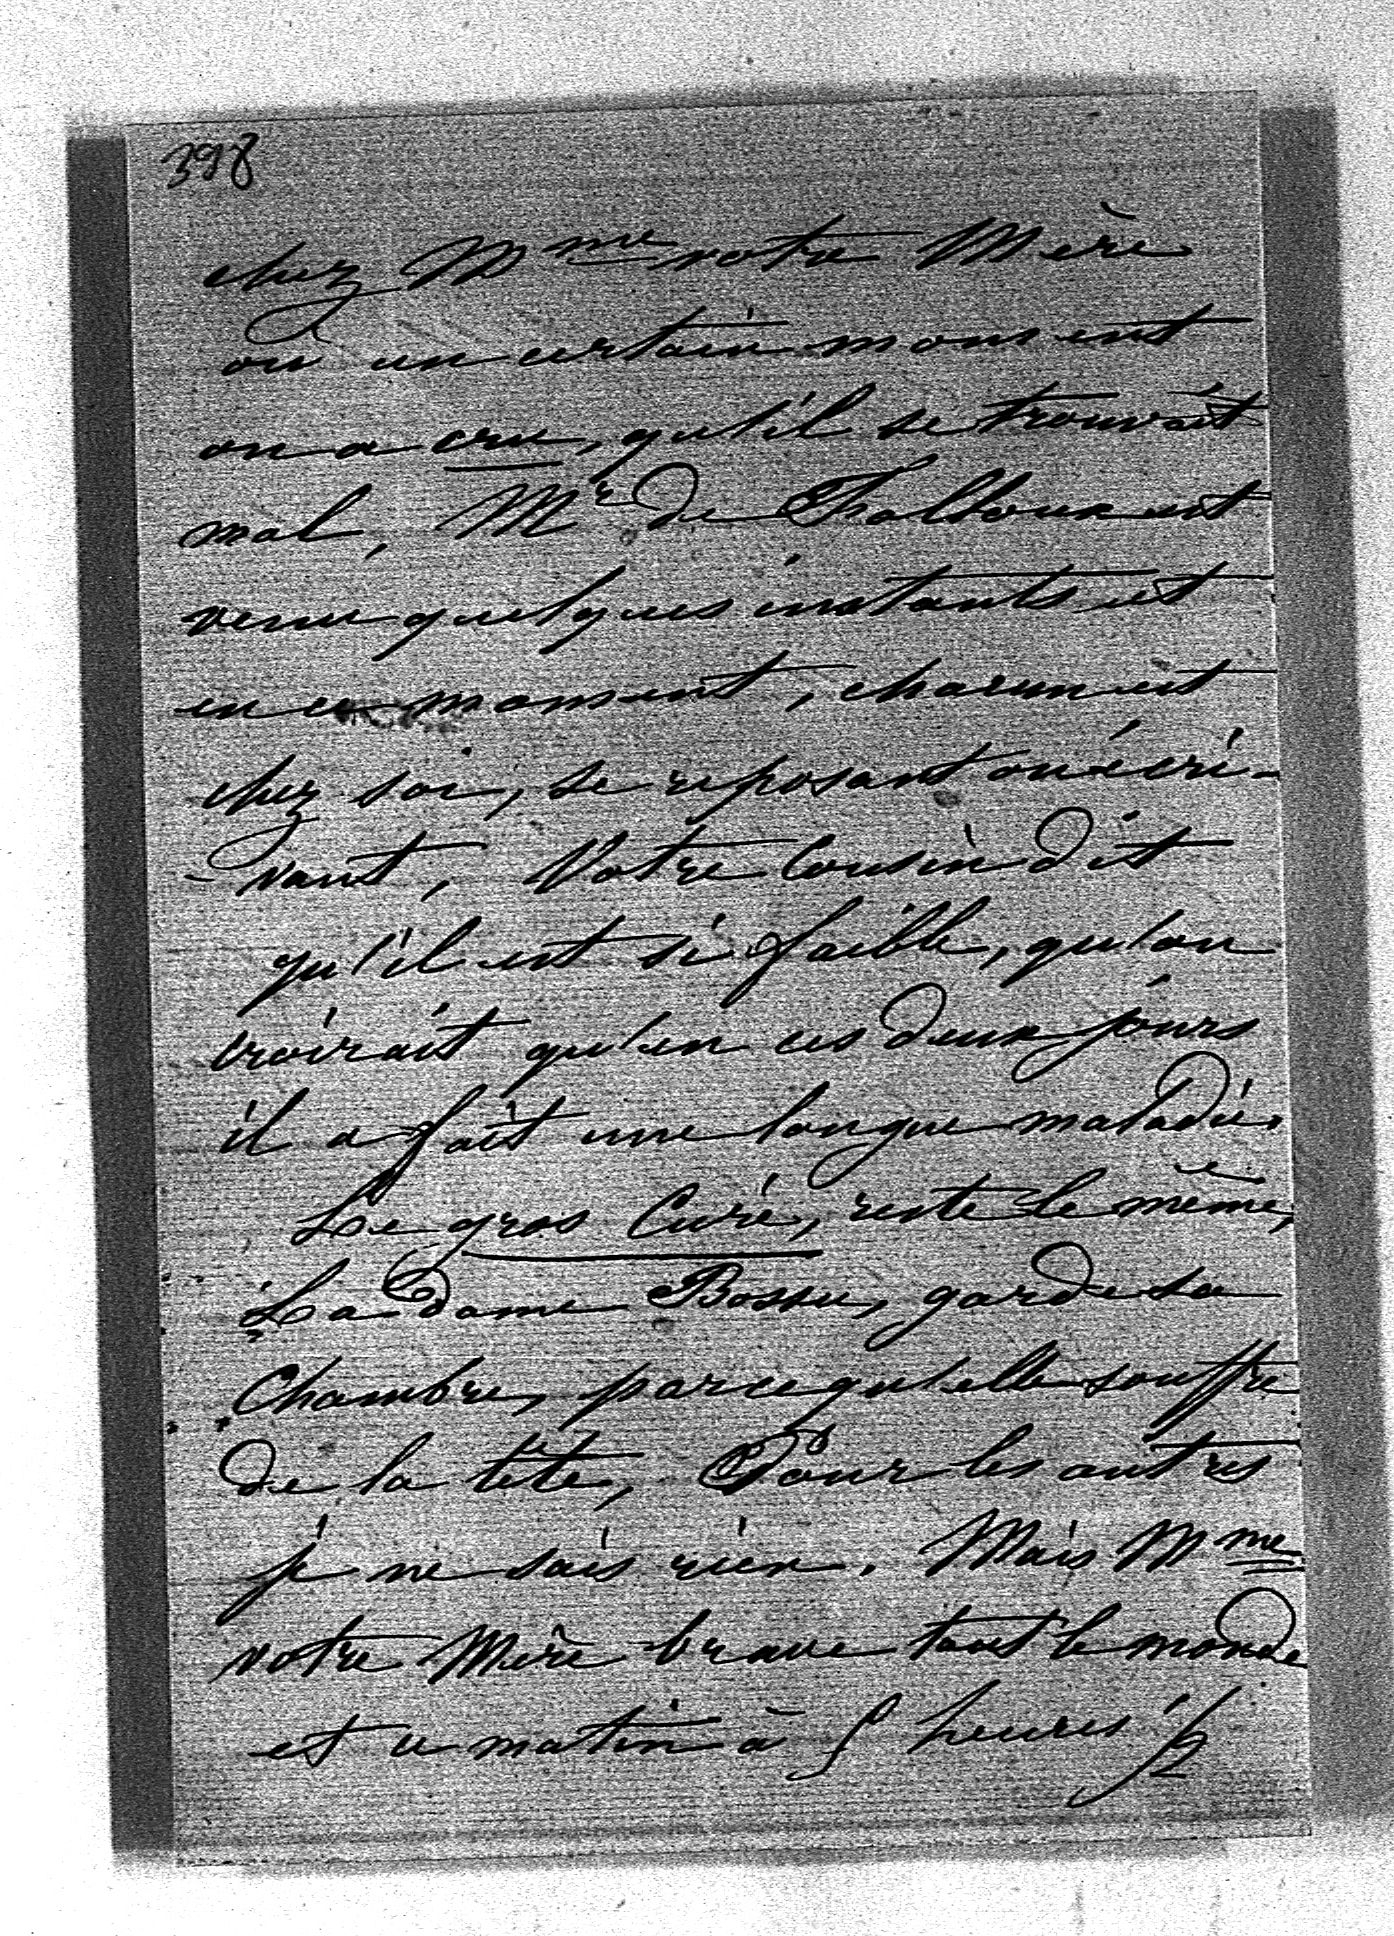 398
chez Mme votre Mère
où un certain moment
on a cru, qu'il se trouvait
mal, Mr de est
venu quelques instants et
en ce moment, chacun est
chez soi, se reposant ou écri-
-vant, Votre Cousin dit
qu'il est si faible, qu'on
croirait qu'en ces deux jours
il a fait une longue maladie.
Le gros Curé, reste le même,
La dame Bossu, garde sa
Chambre, parce qu'elle souffre
de la tête, Pour les autres
je ne sais rien. Mais Mme
votre Mère brave tout le monde
et ce matin à 5 heures ½